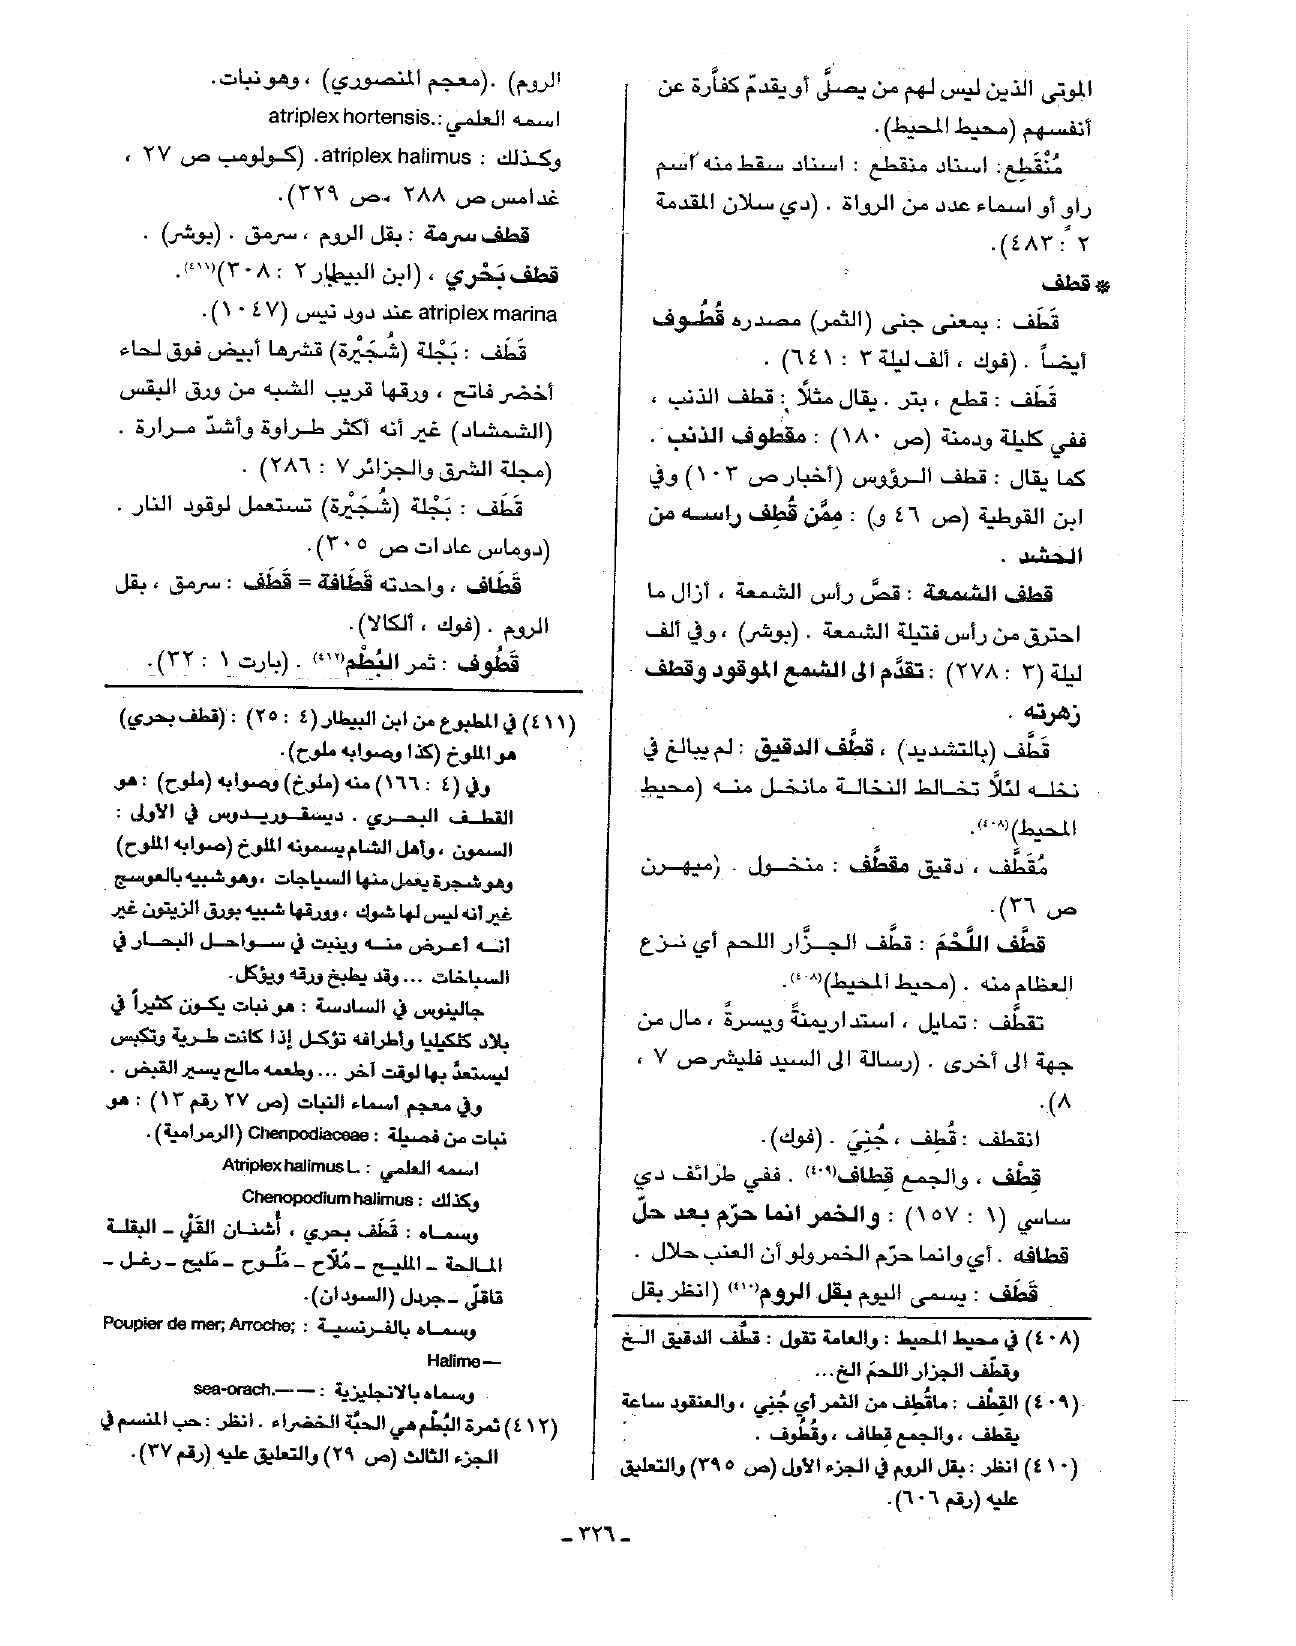 الموتى الذين ليس لهم من يصلَّى أو يقدّم كفأَّرة عن
أنفسهم (محيط المحيط).
مُنْقَطِع: اسناد منقطع : اسناد سقط منه اسم
راو أو اسماء عدد من الرواة . (دي سلان المقدمة
٢ : ٤٨٣).
* قطف
قَطَف : بمعنى جنى (الثمر) مصدره قُطُوف
أيضاً . (فوك ، ألف ليلة ٣ : ٦٤١) .
قَطَف : قطع ، بتر . يقال مثلاً : قطف الذنب ،
ففي كليلة ودمنة (ص ١٨٠) : مقطوف الذنب .
كما يقال : قطف الرؤوس (أخبار ص ١٠٣) وفي
ابن القوطية (ص ٤٦ و) : ممَّن قُطِف راسه من
الحشد .
قطف الشمعة : قصَّ رأس الشمعة ، أزال ما
احترق من رأس فتيلة الشمعة . (بوشر) ، وفي ألف
ليلة (٣ : ٢٧٨) : تقدَّم الى الشمع الموقود وقطف
زهرته .
قَطَّف (بالتشديد) ، قطَّف الدقيق : لم يبالغ في
نخله لئلاَّ تخالط النخالة مانخل منه (محيط
المحيط)(٤٠٨).
مُقَطَّف ، دقيق مقطَّف : منخول . (ميهرن
ص ٣٦).
قطَّف اللَّحْمَ : قطَّف الجزَّار اللحم أي نزع
العظام منه . (محيط المحيط)(٤٠٨).
تقطَّف : تمايل ، استدار يمنةً ويسرةً ، مال من
جهة الى أخرى . (رسالة الى السيد فليشر ص ٧ ،
٨).
انقطف : قُطِف ، جُنِيَ . (فوك).
قِطْف ، والجمع قِطاف(٤٠٩) . ففي طرائف دي
ساسي (١ : ١٥٧) : والخمر انما حرّم بعد حلّ
قطافه . أي وانما حرّم الخمر ولو أن العنب حلال .
قَطَف : يسمى اليوم بقل الروم(٤١٠) (انظر بقل
(٤٠٨) في محيط المحيط : والعامة تقول : قطَّف الدقيق الخ
وقطَّف الجزار اللحمَ الخ...
(٤٠٩) القِطْف : ماقُطِف من الثمر أي جُنِي ، والعنقود ساعة
يقطف ، والجمع قطاف ، وقُطُوف .
(٤١٠) انظر : بقل الروم في الجزء الأول (ص ٣٩٥) والتعليق
عليه (رقم ٦٠٦).
الروم) . (معجم المنصوري) ، وهو نبات.
اسمه العلمي :.atriplex hortensis
وكذلك : atriplex halimus. (كولومب ص ٢٧ ،
غدامس ص ٢٨٨ ، ص ٣٢٩).
قطف سرمة : بقل الروم ، سرمق . (بوشر) .
قطف بَحْري ، (ابن البيطار ٢ : ٣٠٨)(٤١١).
atriplex marina عند دود نيس (١٠٤٧).
قَطَف : بَجْلة (شُجَيْرة) قشرها أبيض فوق لحاء
أخضر فاتح ، ورقها قريب الشبه من ورق البقس
(الشمشاد) غير أنه أكثر طراوة وأشدّ مرارة .
(مجلة الشرق والجزائر ٧ : ٢٨٦) .
قَطَف : بَجْلة (شُجَيْرة) تستعمل لوقود النار .
(دوماس عادات ص ٣٠٥).
قَطَّاف ، واحدته قَطَّافة = قَطَف : سرمق ، بقل
الروم . (فوك ، ألكالا).
قَطُوف : ثمر البُطْم(٤١٢) . (بارت ١ : ٣٢).
(٤١١) في المطبوع من ابن البيطار (٤ : ٢٥) : (قطف بحري)
هو الملوخ (كذا وصوابه ملوح).
وفي (٤ : ١٦٦) منه (ملوخ) وصوابه (ملوح) : هو
القطف البحري . ديسقوريدوس في الاولى :
السمون ، وأهل الشام يسمونه الملوخ (صوابه الملوح)
وهو شجرة يعمل منها السياجات ، وهو شبيه بالعوسج
غير انه ليس لها شوك ، وورقها شبيه بورق الزيتون غير
انه أعرض منه وينبت في سواحل البحار في
السباخات ... وقد يطبخ ورقه ويؤكل.
جالينوس في السادسة : هو نبات يكون كثيراً في
بلاد كلكيليا وأطرافه تؤكل إذا كانت طرية وتكبس
ليستعدَّ بها لوقت آخر ... وطعمه مالح يسير القبض .
وفي معجم أسماء النبات (ص ٢٧ رقم ١٣) : هو
نبات من فصيلة : Chenpodiaceae (الرمرامية).
اسمه العلمي : .Atriplex halimus L
وكذلك : Chenopodium halimus
وسماه : قَطَف بحري ، أُشنان القَلْي ـ البقلة
المالحة ـ المليح ـ مُلاَّح ـ مَلُّوح ـ مَليح ـ رغل ـ
قاقلَّي ـ جردل (السودان).
وسماه بالفرنسية : Poupier de mer; Arroche;
Halime—
وسماه بالانجليزية : ——.sea-orach
(٤١٢) ثمرة البُطْم هي الحبَّة الخضراء . انظر : حب المنسم في
الجزء الثالث (ص ٢٩) والتعليق عليه (رقم ٣٧).
ـ ٣٢٦ ـ